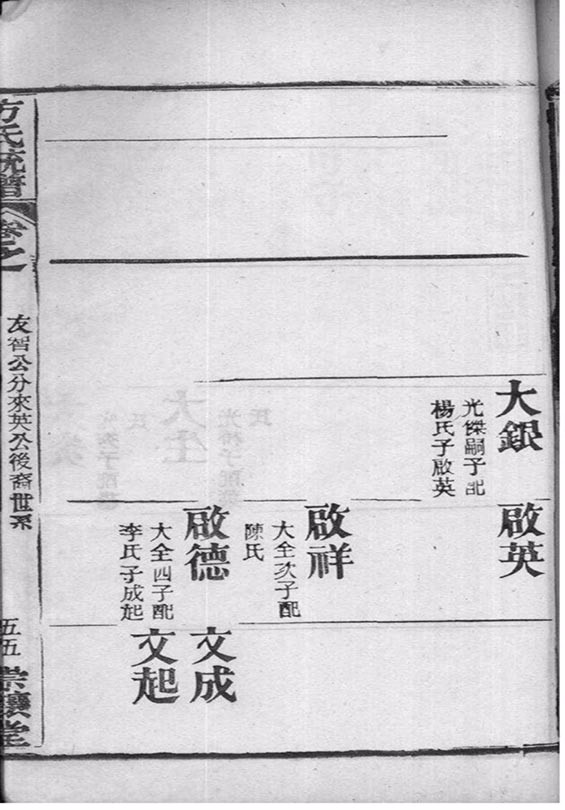 大銀
光傑嗣子配
楊氏子啟英
啟英
啟祥
大全次子配
陳氏
啟德
大全四子配
李氏子成起
文成
文起
方氏統譜
卷之
友智公分來英公後裔世系
五五
崇讓堂